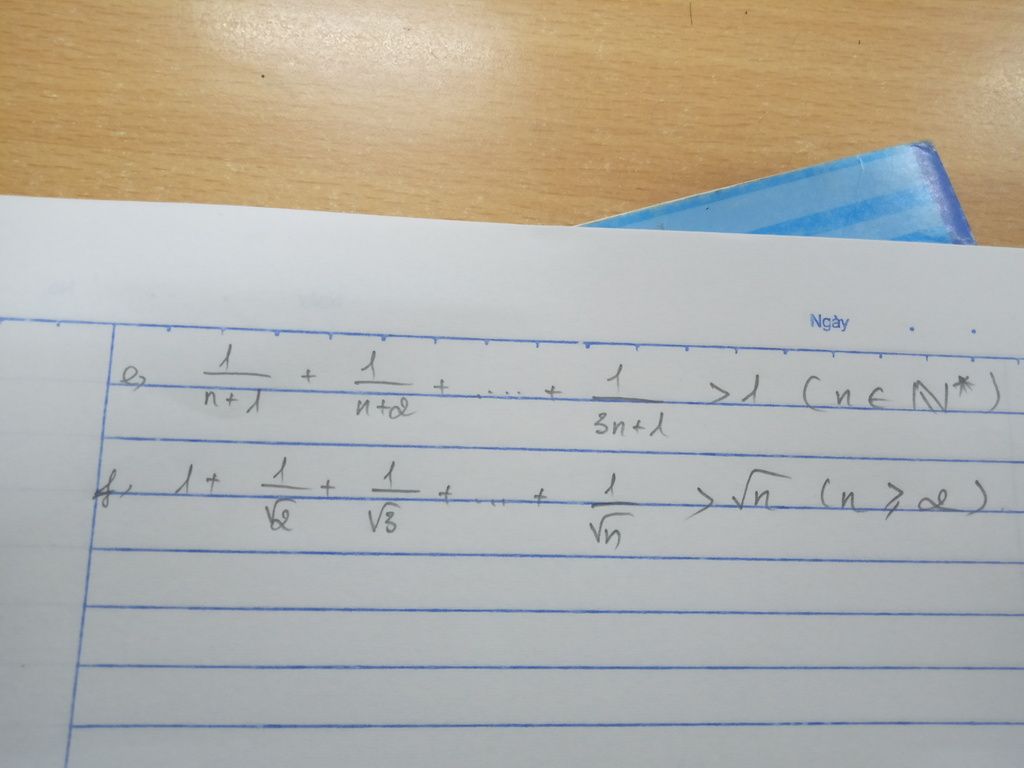 Ngày
e, \frac{1}{n+1} + \frac{1}{n+2} + .... + \frac{1}{3n+1} > 1 (n ∈ ℕ*)
f, 1 + \frac{1}{\sqrt{2}} + \frac{1}{\sqrt{3}} + ... + \frac{1}{\sqrt{n}} > \sqrt{n} (n ⩾ 2)